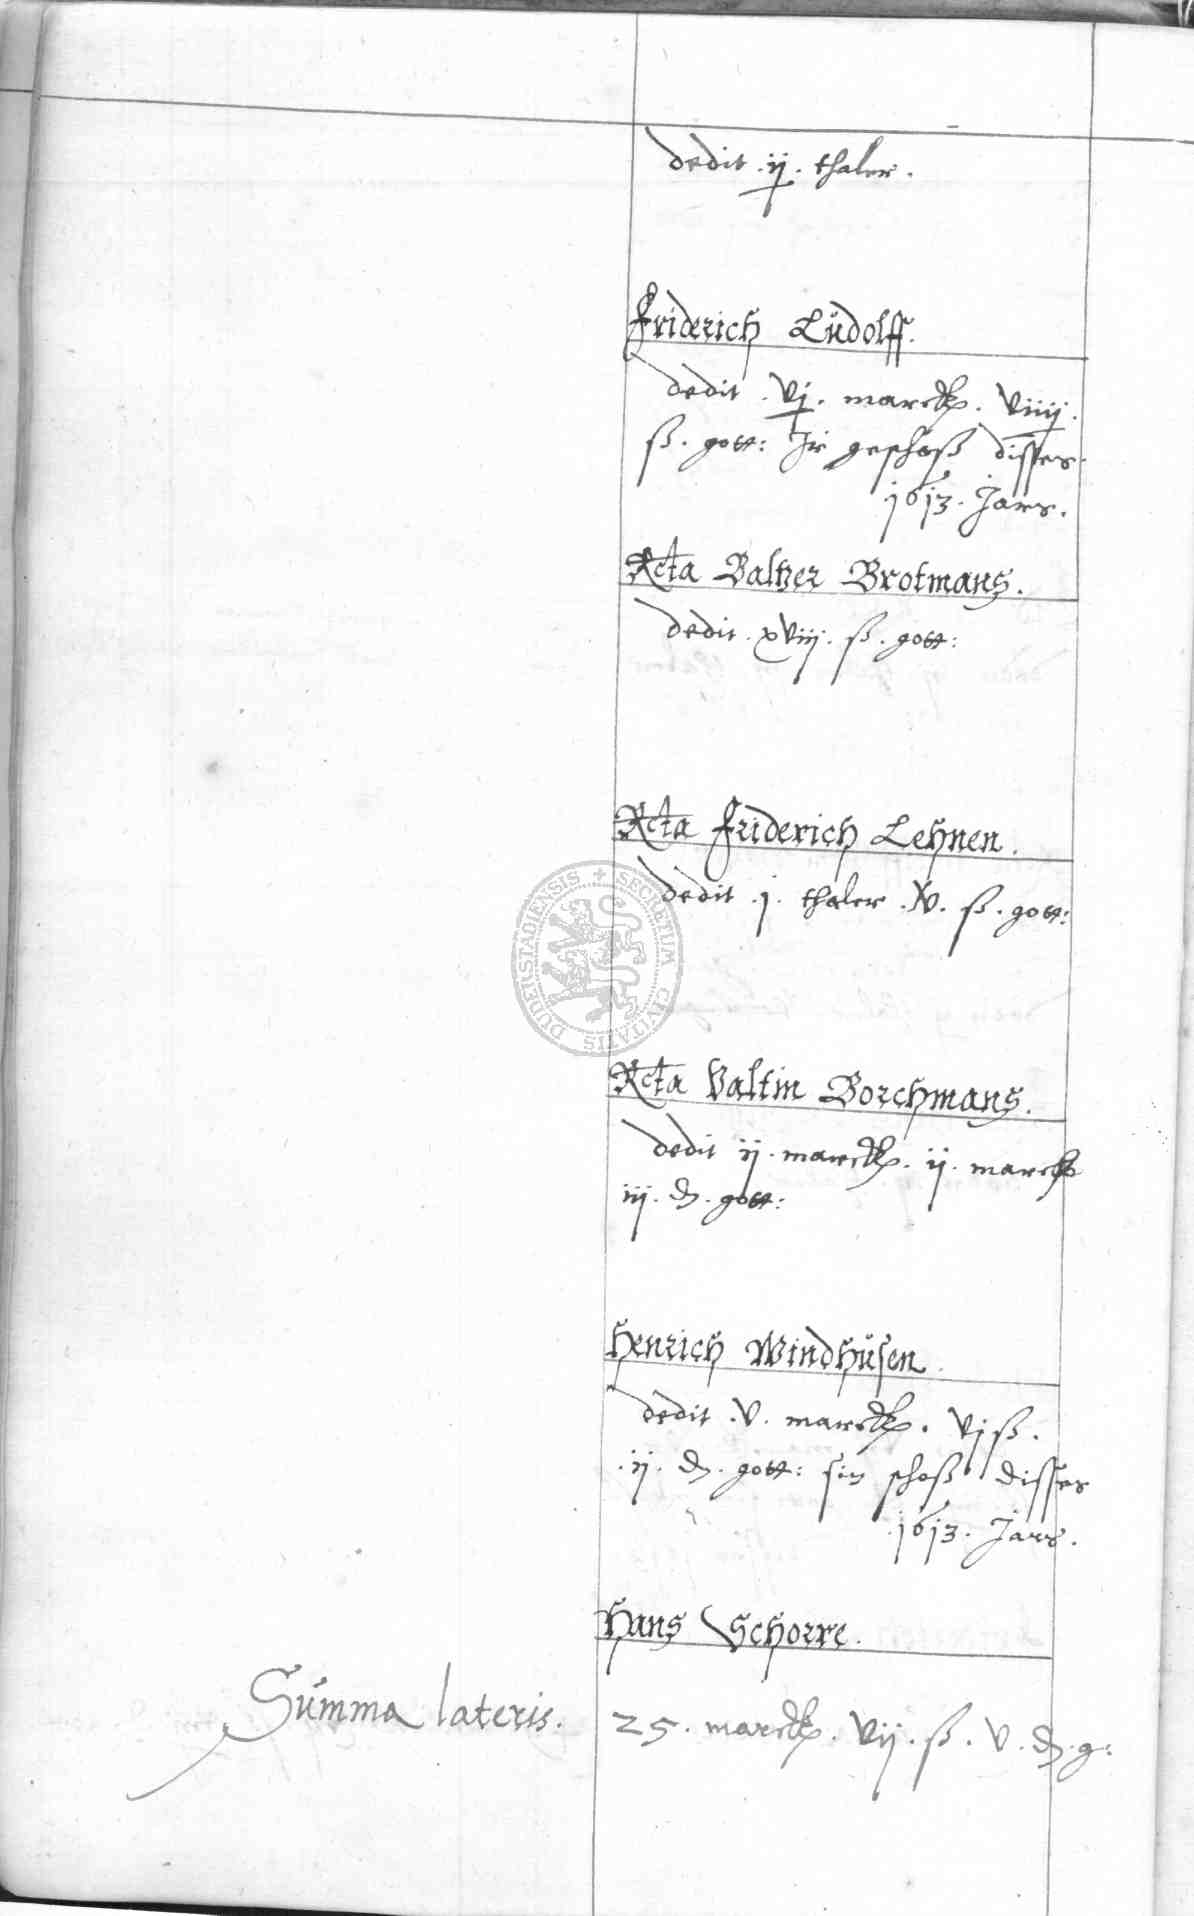 dedit .ij. thaler.
Friderich Lüdolff.
dedit .vj. marck. viiij.
ß. gott: Ir geschoß disses
.1613. Jars.
Relicta Baltzer Brotmans.
dedit. xviij. ß. gott:
Relicta Friderich Lehnen.
dedit .j. thaler . ß. gott:
SECRETUM CIVITATIS DUDERSTADIENSIS
Relicta Valtin Borchmans.
dedit ij. marck. ij. marck
iij. d. gott:
Henrich Windhüsen.
dedit .v. marck. vj ß.
.ij. d. gott: sin schoß disses
.1613. Jars.
Hans Schorre.
Summa lateris. 25. marck. vij. ß. v. d. g: